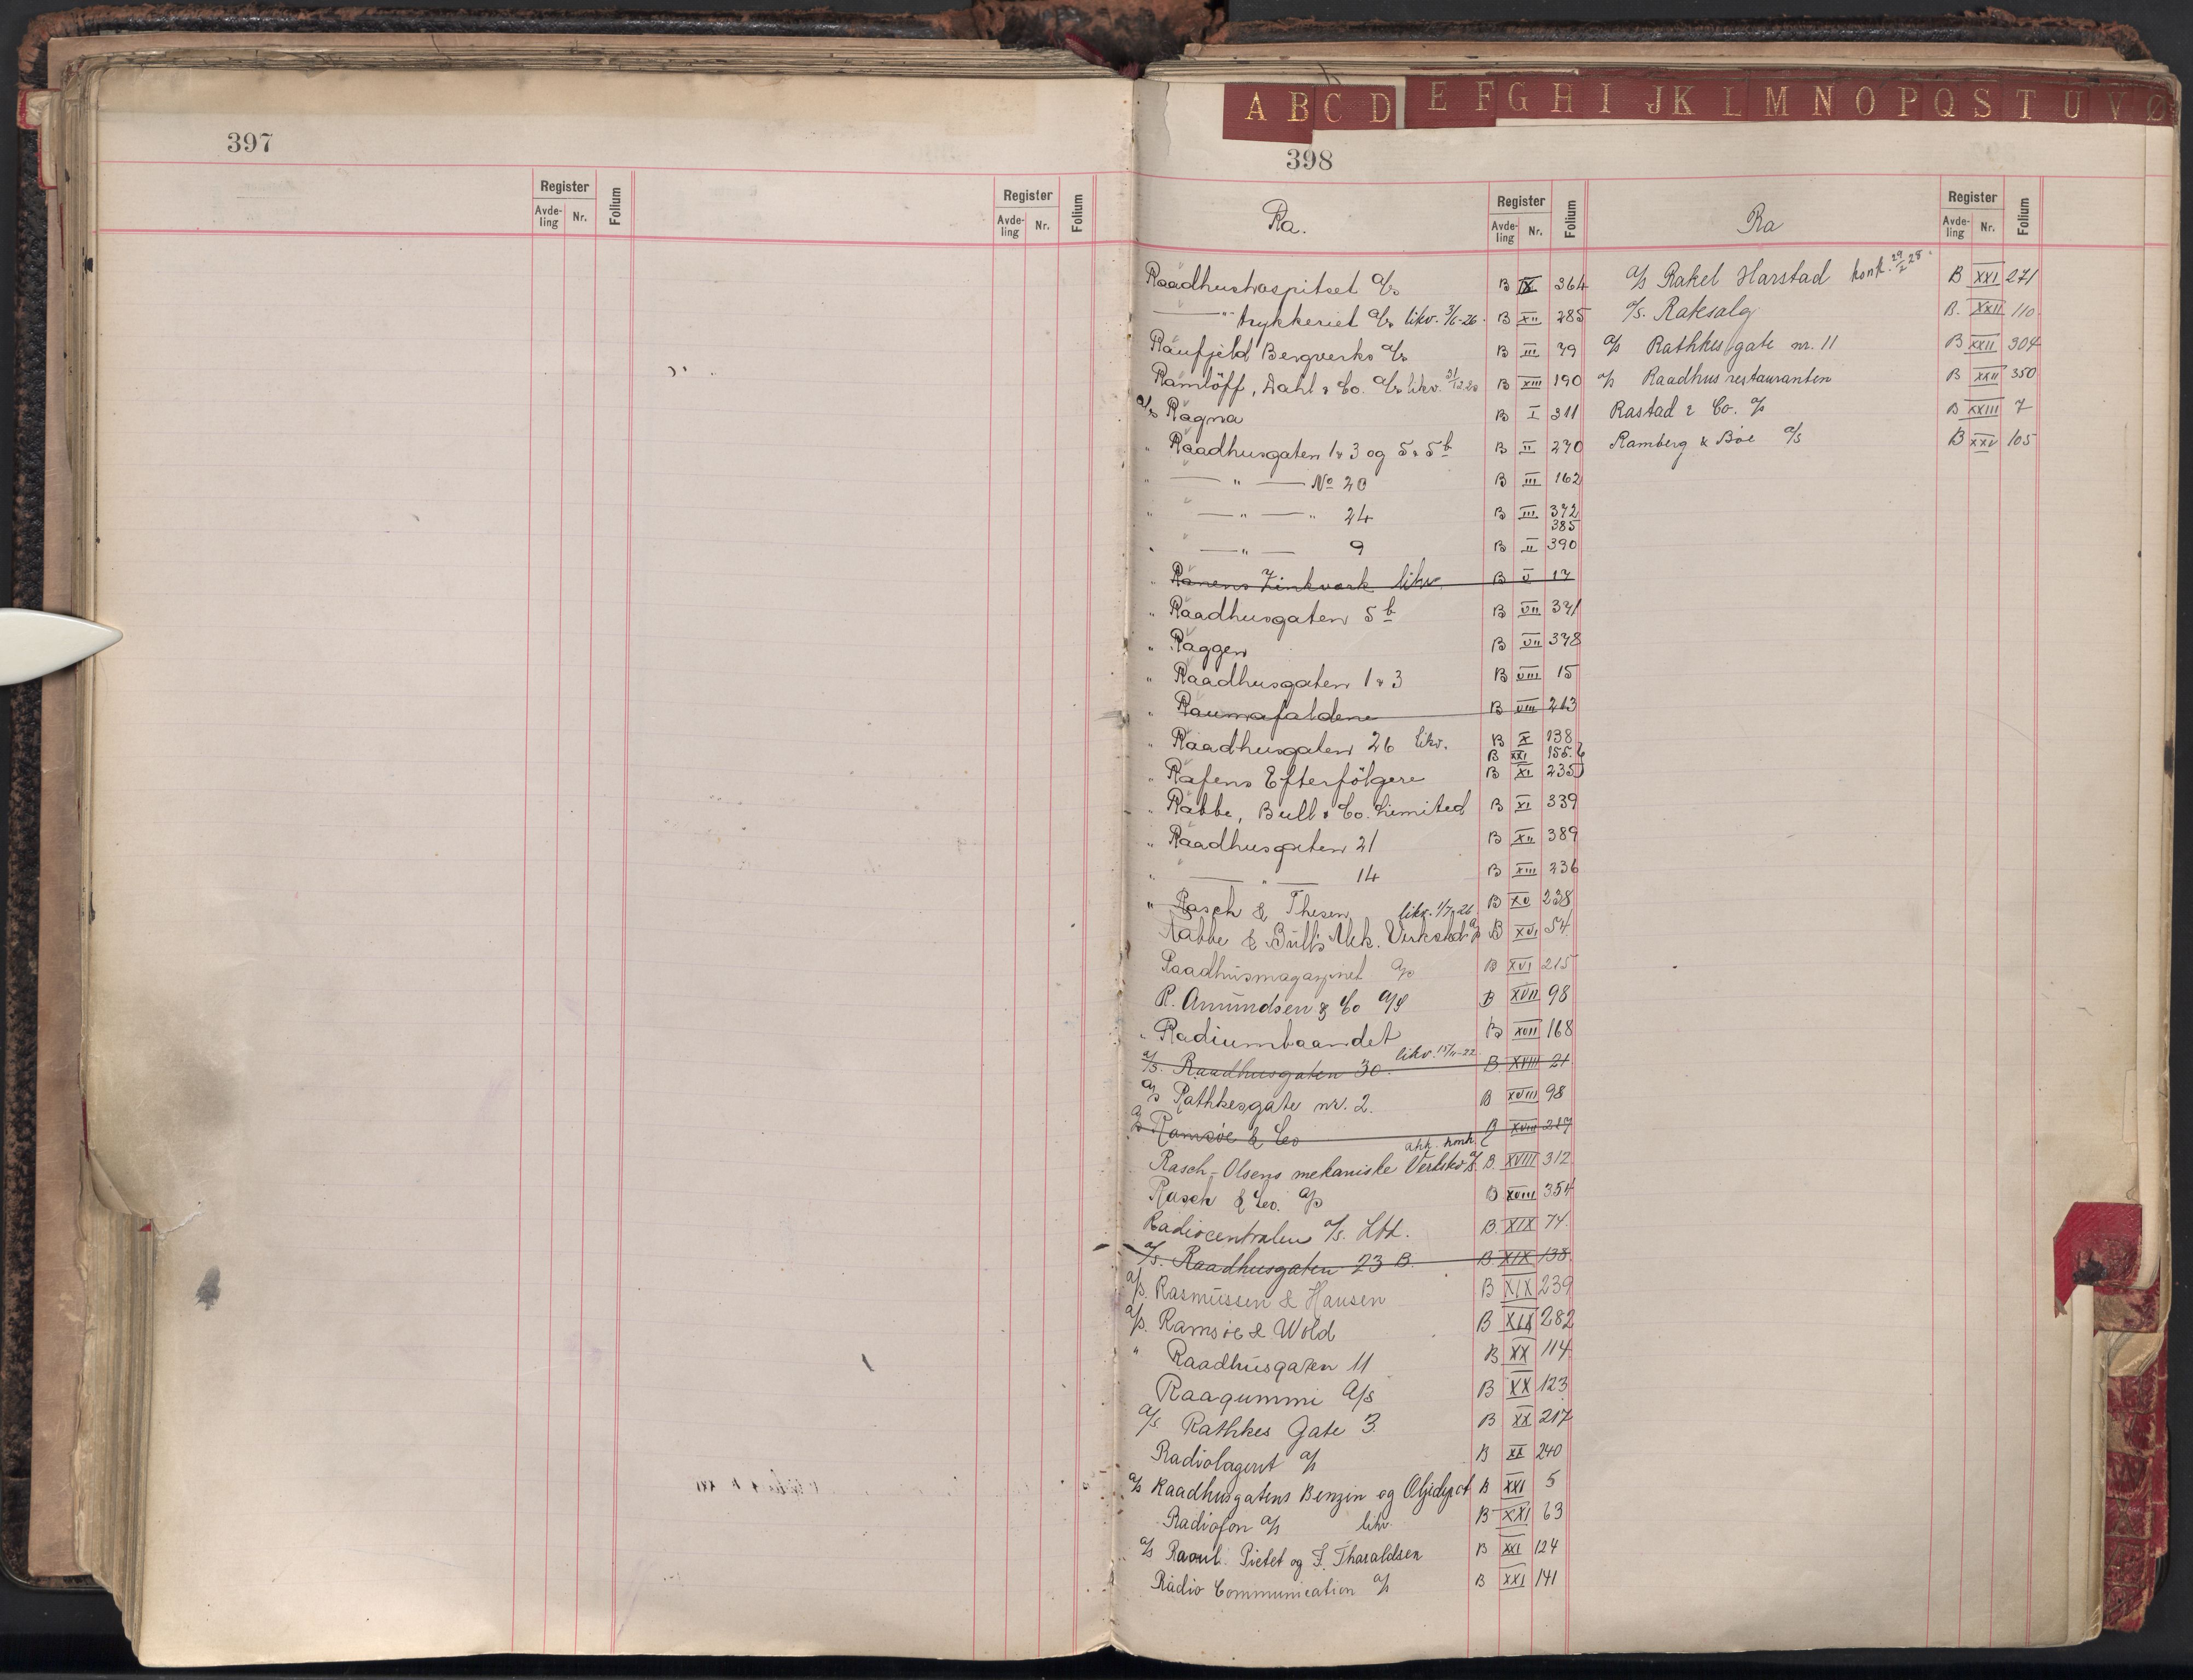 A B C D E F G H I J K L M N O P Q S T U V Ø
397
Register Folium Register Folium
Avde-ling Nr. Avde-ling Nr.
398
Ra. Register Folium
Avde-ling Nr.
Raadhushospitset A/s B IX 364
—"— trykkeriet A/s likv. 3/6-26. B XII 285
Raufjeld Bergverks A/s B III 79
Ramlöff, Dahl & Co. A/s likv. 31/12 20 B XIII 190
A/s Ragna B I 311
" Raadhusgaten 1 & 3 og 5 & 5b B II 270
" —"— No 20 B III 162
" —"— " 24 B III 372
385
" —"— 9 B II 390
" Ranens Zinkverk likv B V 17
" Raadhusgaten 5b B VII 371
" Raggen B VII 378
" Raadhusgaten 1 & 3 B VIII 15
" Raumafaldene B VIII 263
" Raadhusgaten 26 likv. B X 138
B XXI 155.b
" Rafens Efterfölgere B XI 235
" Rabbe, Bull & Co. Limited B XI 339
" Raadhusgaten 21 B XII 389
" —"— 14 B XIII 236
" Rasch & Thesen likv. 1/7-26. B XV 238
Rabbe & Bull's Mek. Verksted A/s B XVI 54
Raadhusmagasinet A/s B XVI 215
R. Amundsen & Co A/S B XVII 98
" Radiumbaandet B XVII 168
A/s. Raadhusgaten 30. likv. 15/11-22. B. XVIII 21
A/s Rathkesgate nr. 2. B XVIII 98
A/s Ramsöe & Co B XVIII 217
Rasch-Olsens mekaniske Verksted A/s akk. konk. B. XVIII 312
Rasch & Co. A/s B XVIII 354
Radiocentralen A/s. Ltd. B. XIX 74.
A/s. Raadhusgaten 23 B. B XIX 138.
A/s. Rasmussen & Hansen B XIX 239
A/s. Ramsöe & Wold B XIX 282
" Raadhusgaten 11 B XX 114
Raagummi A/s B XX 123
A/s. Rathkes Gate 3. B XX 217
Radiolageret A/s B XX 240
A/s Raadhusgatens Benzin og Oljedepot B XXI 5
Radiofon A/s likv. B XXI 63
A/s Raoul Pictet og F. Tharaldsen B XXI 124
Radio Communication A/s B XXI 141
Ra Register Folium
Avde-ling Nr.
A/s Rakel Harstad konk. 28. B XXI 271
A/s. Raksalg B. XXII 110
A/s Rathkes gate nr. 11 B XXII 304
A/s Raadhusrestauranten B XXII 350
Rastad & Co. A/s B XXIII 7
Ramberg & Böe A/s B XXV 105